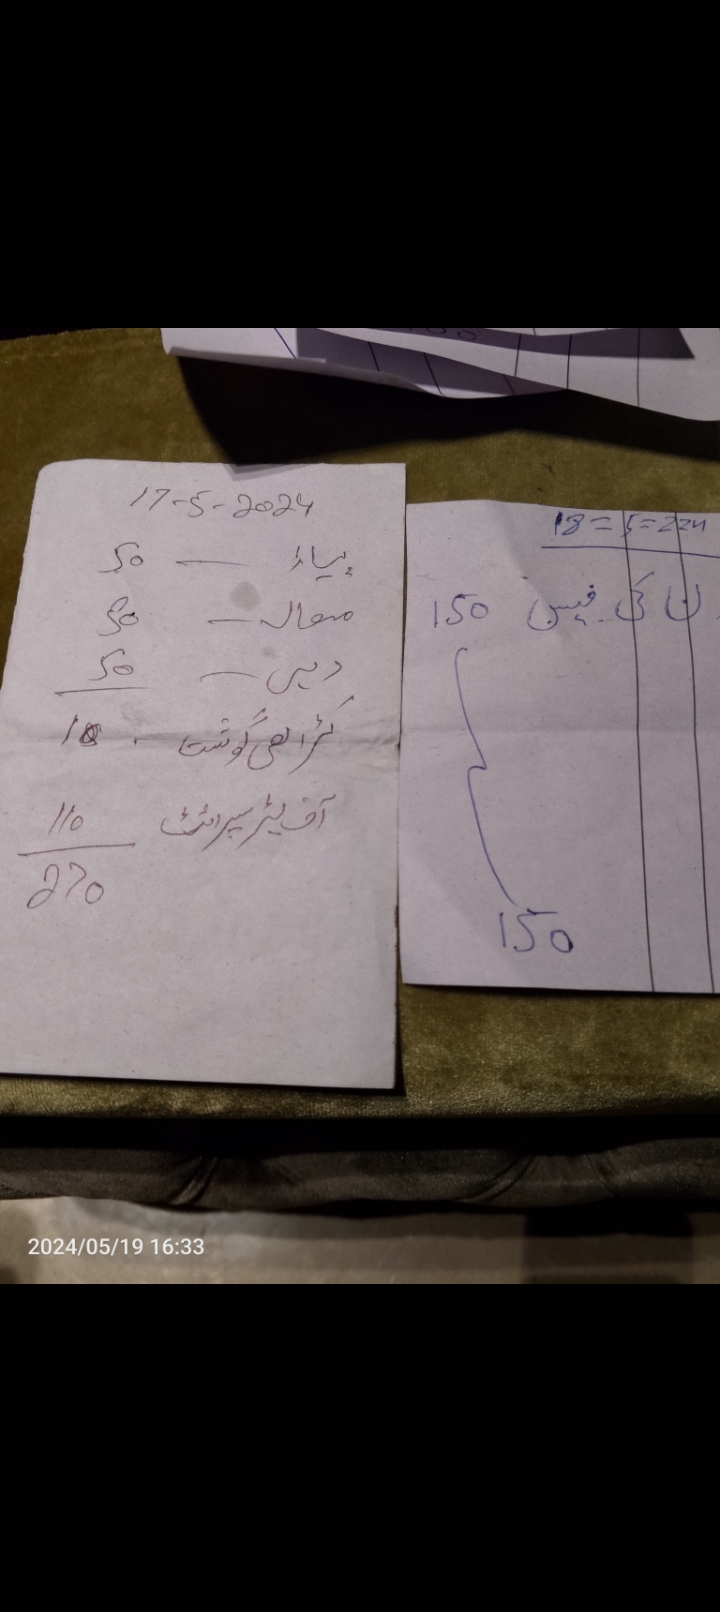 17-5-2024
پیاز — 50
مصالہ — 50
دہی — 50
کڑاھی گوشت . 10
آف لیٹر سپرائٹ 110
270
18=5=224
ن کی فیس 150
150
2024/05/19 16:33